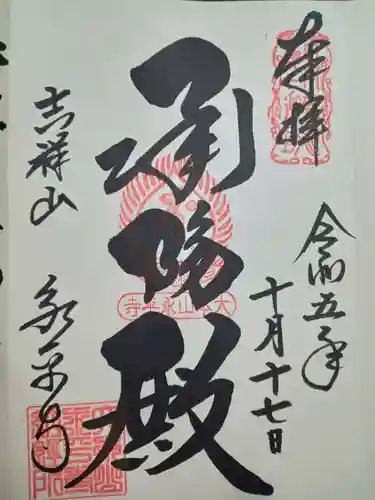 奉拝
令和五年
十月十七日
承陽殿
大本山永平寺
吉祥山
永平寺